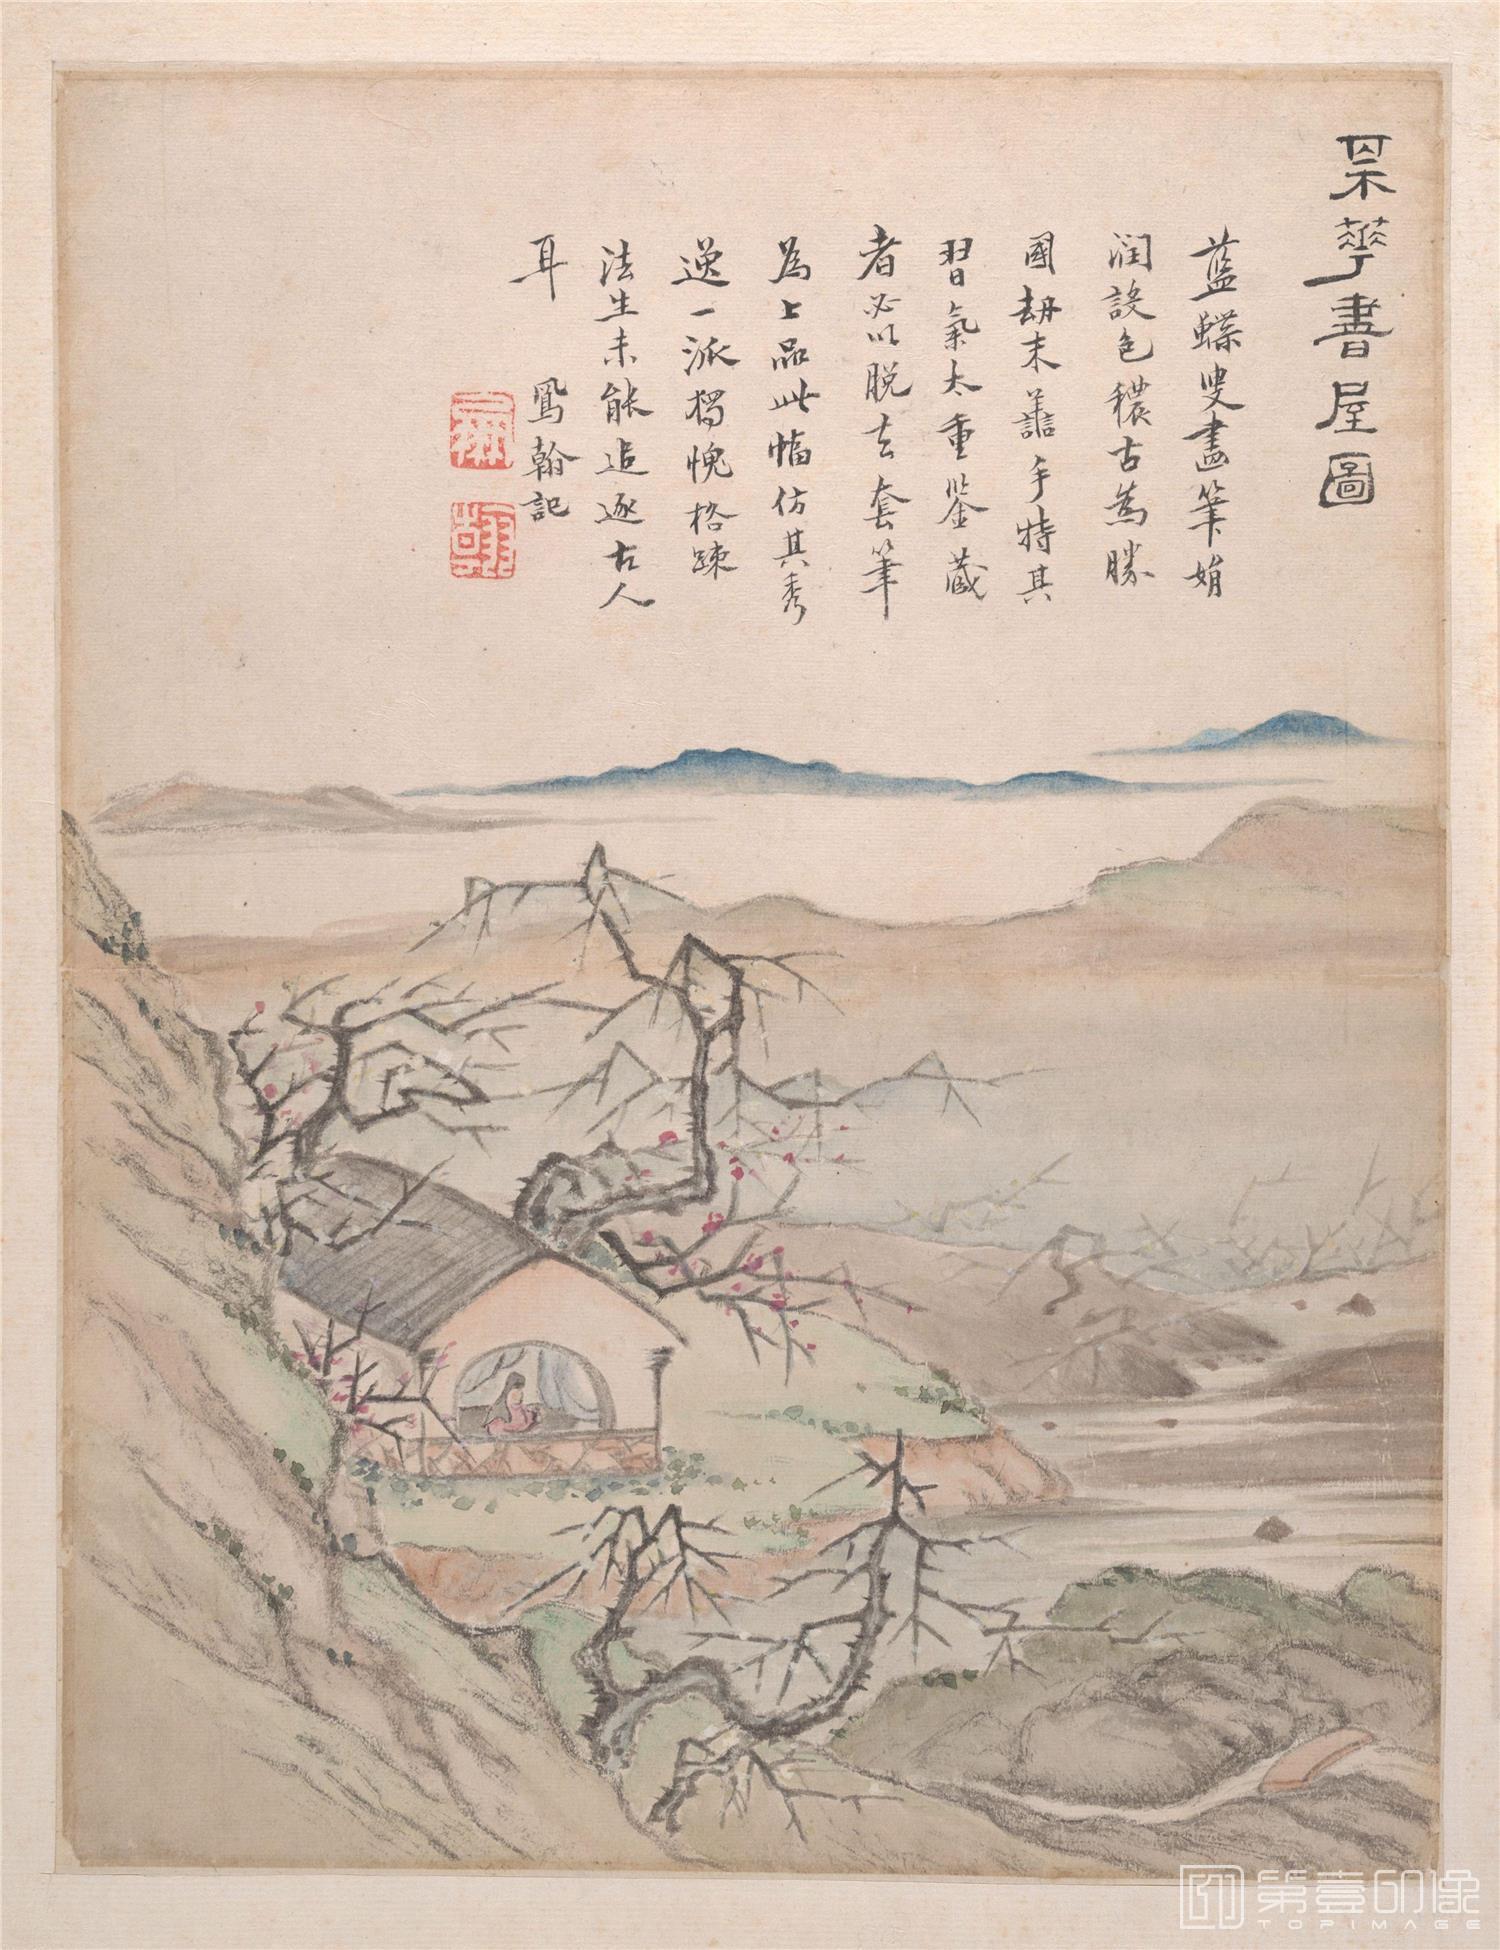 槑華書屋圖
藍蝶叟畫筆娟
潤設色穠古為勝
國劫末譱手特其
習氣太重鑒藏
者必以脫去套筆
為上品此幅仿其秀
逸一派獨愧格踈
法生未能追逐古人
耳 鳳翰記
第壹印像
TOPIMAGE